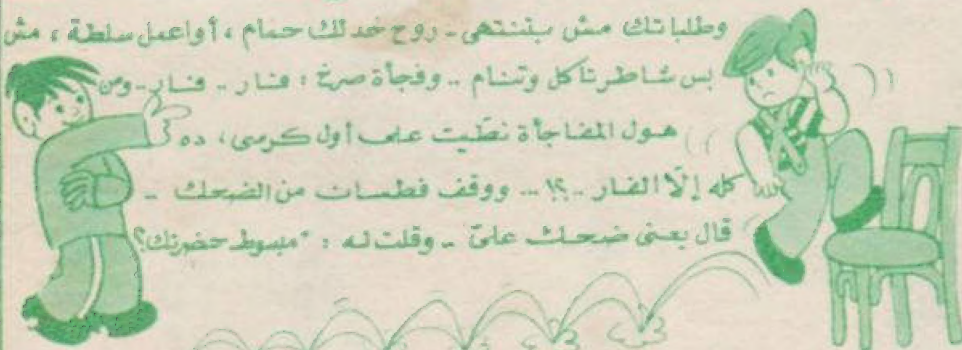 وطلباتك مش بتنتهى - روح خد لك حمام ، أو اعمل سلطة ، مش
بس شاطر تاكل وتنام .. وفجأة صرخ : فار .. فار - ومن
هول المفاجأة نطّيت على أول كرسى ، ده
كله إلّا الفار ..؟! ... ووقف فطسان من الضحك -
قال يعنى ضحك علىّ - وقلت له : "مبسوط حضرتك؟